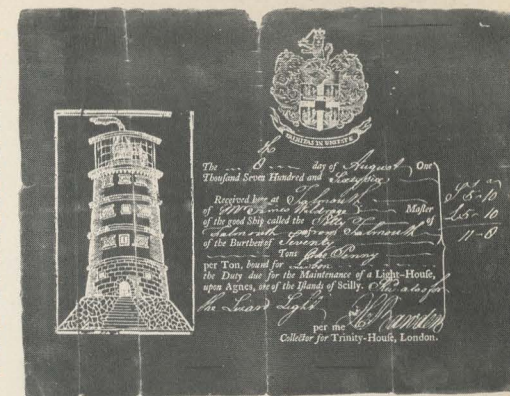 TRINITAS IN UNITATE
The 8th day of August One
Thousand Seven Hundred and Sixty six
Received here at Falmouth
of Mr Master
of the good Ship called the of
Falmouth from Falmouth
of the Burthen of Seventy
Tons One Penny
per Ton, bound for
the Duty due for the Maintenance of a Light-House,
upon Agnes, one of the Islands of Scilly. The also for
the Light
per me
Collector for Trinity-House, London.
5-10
5-10
11-8